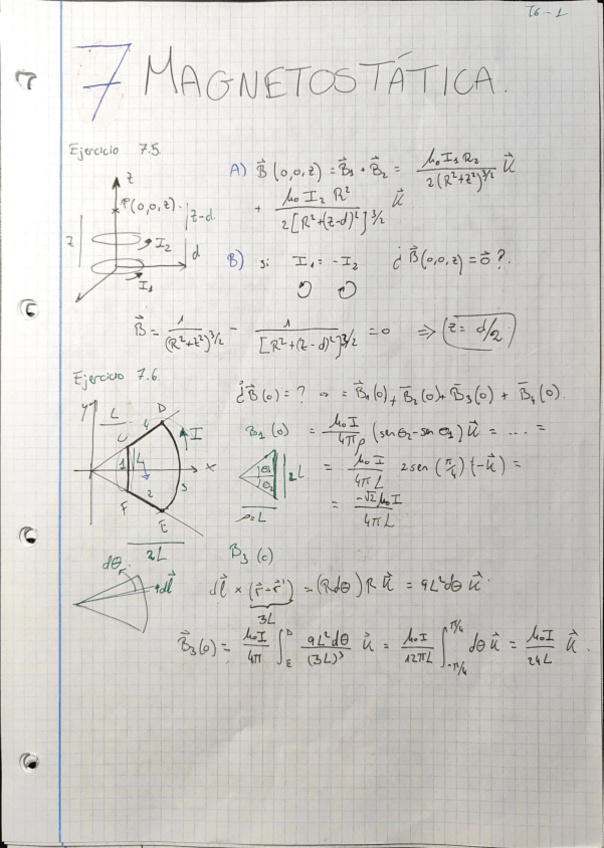 T6-1
7 MAGNETOSTÁTICA.
Ejercicio 7.5.
z
P(0,0,z).
z-d.
z
I₂
d
I₁
A) B⃗(0,0,z) = B⃗₁ + B⃗₂ = μ₀ I₁ R₂ / 2(R²+z²)^3/2 u⃗
+ μ₀ I₂ R² / 2[R²+(z-d)²]^3/2 u⃗
B) si I₁ = -I₂ ¿B⃗(0,0,z) = 0⃗?.
B⃗ = 1/(R²+z²)^3/2 - 1/[R²+(z-d)²]^3/2 = 0 ⇒ z = d/2
Ejercicio 7.6.
¿B⃗(0) = ? → = B⃗₁(0) + B⃗₂(0) + B⃗₃(0) + B⃗₄(0).
y
L
D
4
I
1
x
2
3
F
E
2L
B₁(0) = μ₀I/4πρ (sen θ₂ - sen θ₁) u⃗ = .... =
θ₁
θ₂
2L
ρ=L
= μ₀ I/4π L 2sen (π/4) (-u⃗) =
= -√2 μ₀ I/4π L
B₃(0)
dθ
dl⃗
dl⃗ × (r⃗ - r⃗') = (R dθ) R u⃗ = 9L² dθ u⃗
3L
B⃗₃(0) = μ₀I/4π ∫_E^D 9L² dθ/(3L)³ u⃗ = μ₀ I/12πL ∫_-π/4^π/4 dθ u⃗ = μ₀ I/24L u⃗.